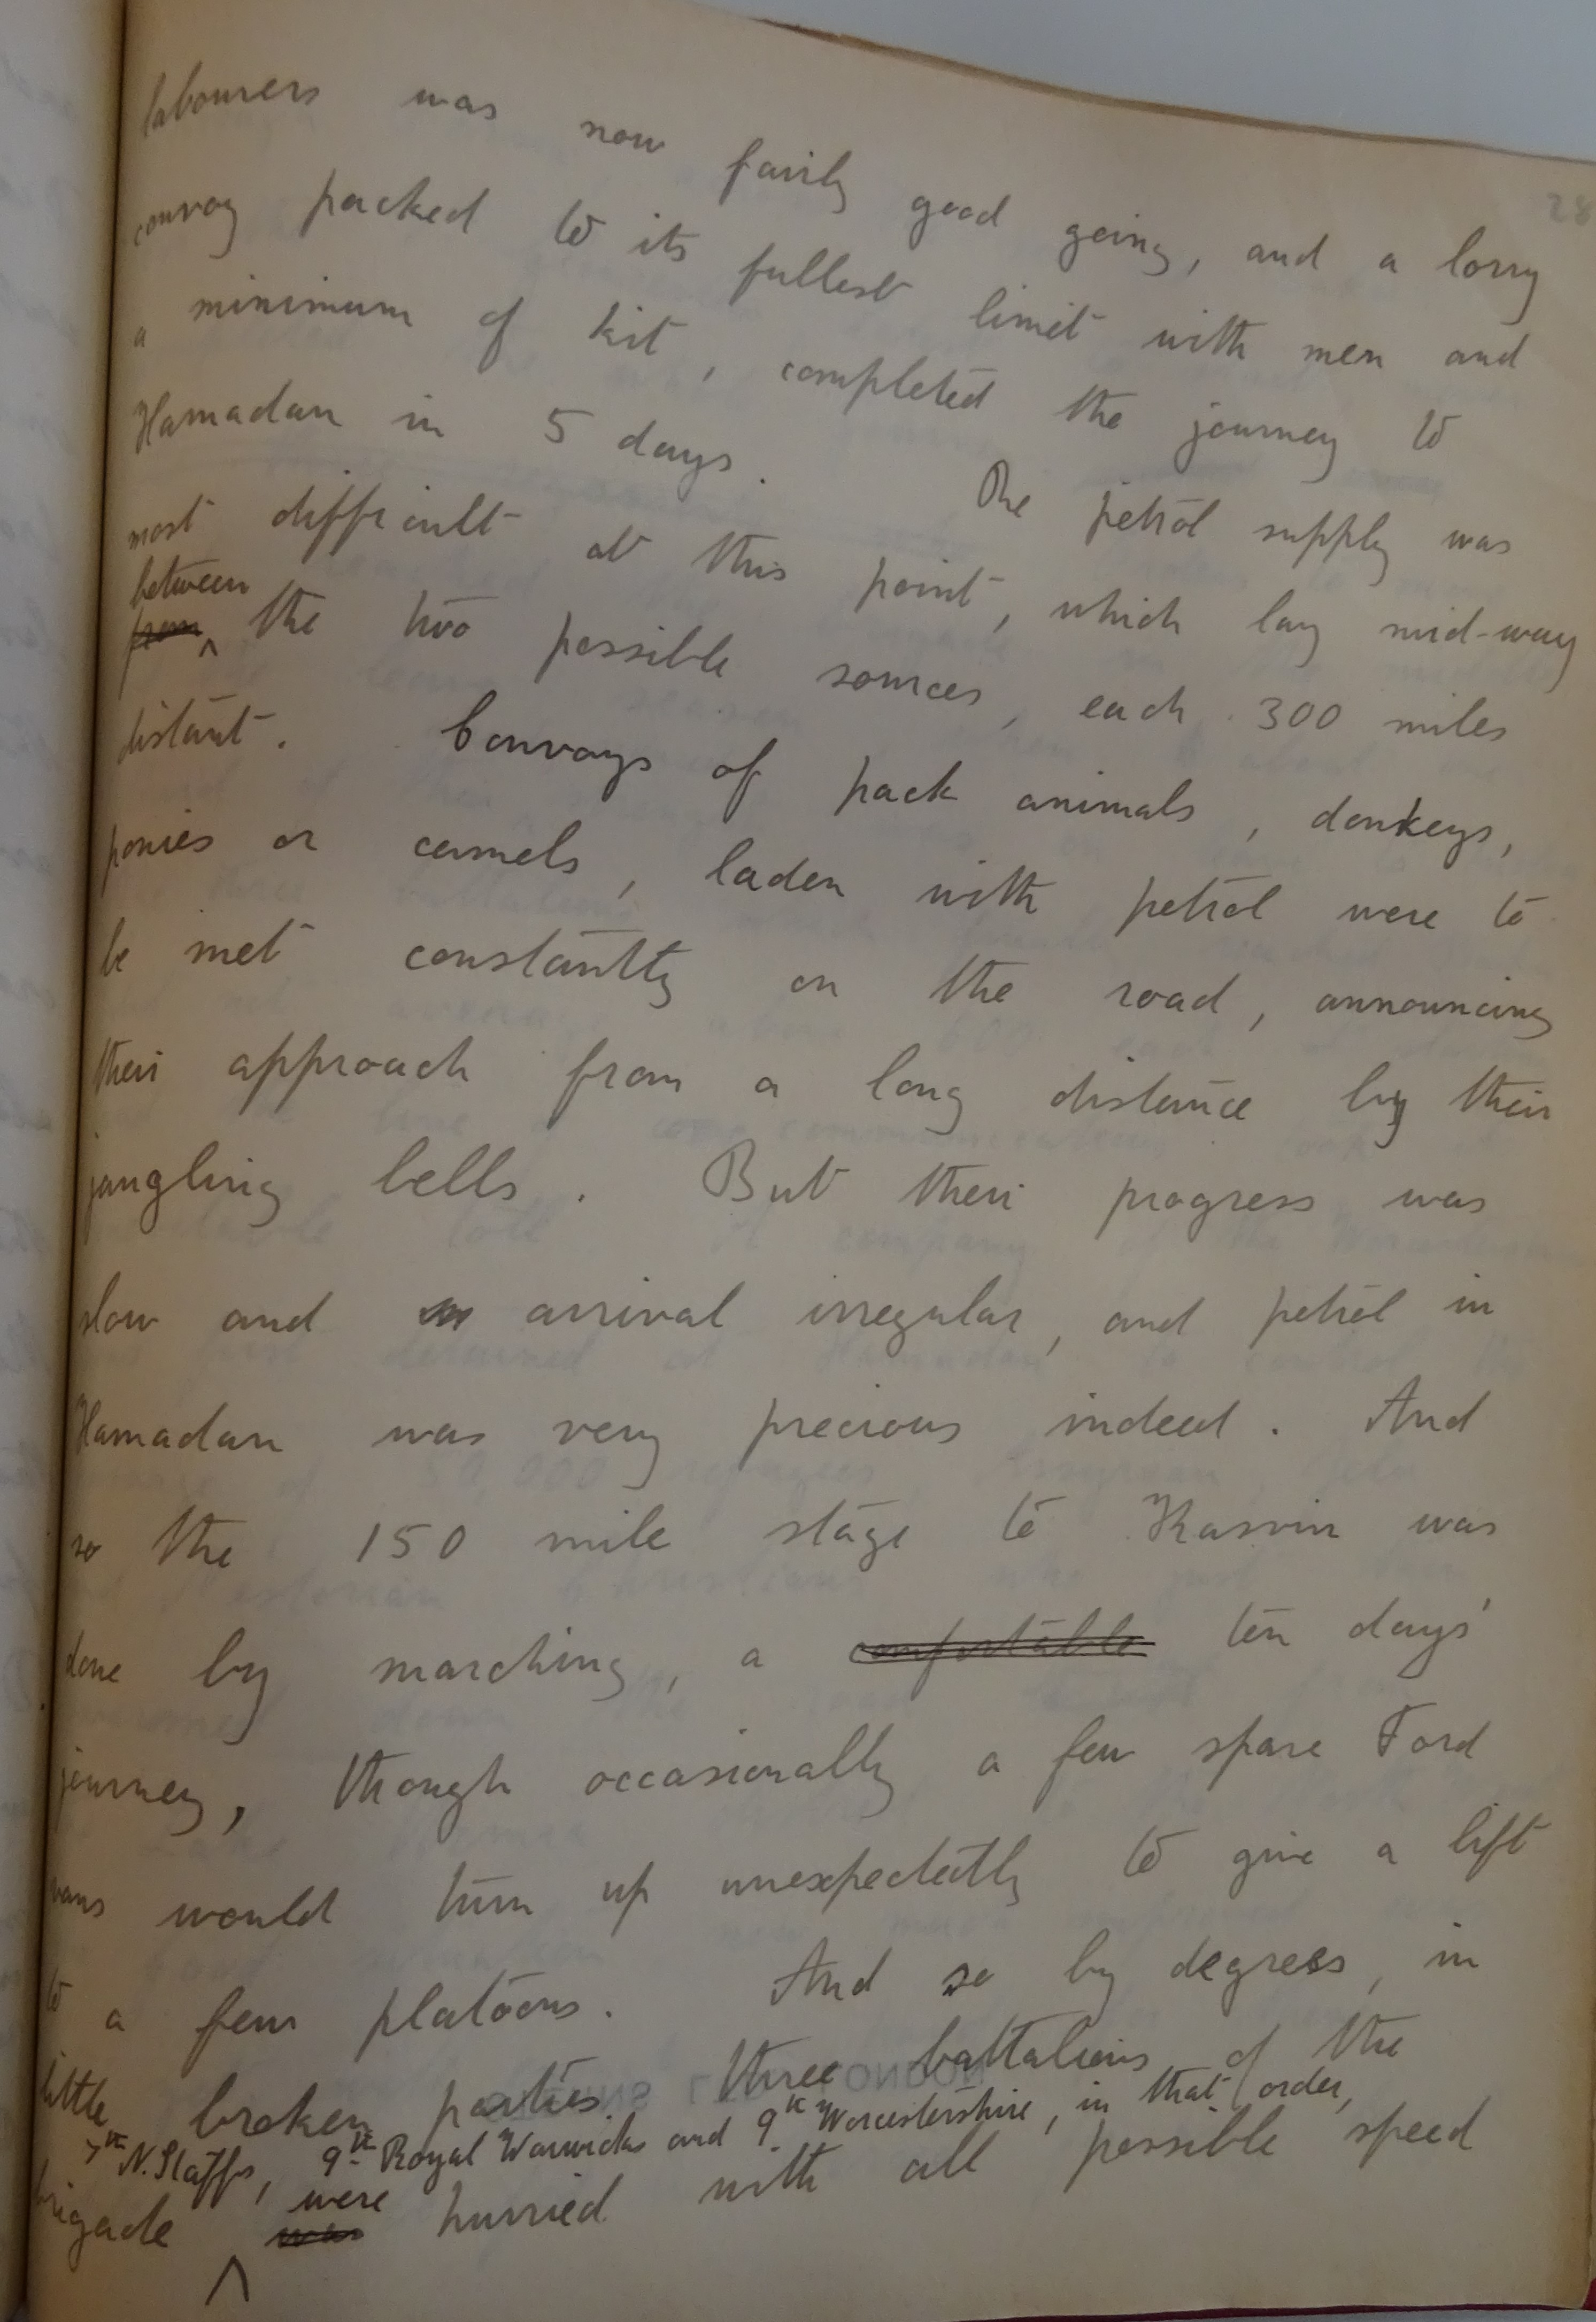 28
labourers was now fairly good going, and a lorry
convoy packed to its fullest limit with men and
a minimum of kit, completed the journey to
Hamadan in 5 days. The petrol supply was
most difficult at this point, which lay mid-way
between
from ^ the two possible sources, each 300 miles
distant. Convoys of pack animals, donkeys,
ponies or camels, laden with petrol were to
be met constantly on the road, announcing
their approach from a long distance by their
jangling bells. But their progress was
slow and arrival irregular, and petrol in
Hamadan was very precious indeed. And
so the 150 mile stage to Kasvin was
done by marching, a comfortable ten days'
journey, though occasionally a few spare Ford
vans would turn up unexpectedly to give a lift
to a few platoons. And so by degrees, in
little broken parties three battalions of the
7th N. Staffs, 9th Royal Warwicks and 9th Worcestershire, in that order,
were
brigade ^ was hurried with all possible speed